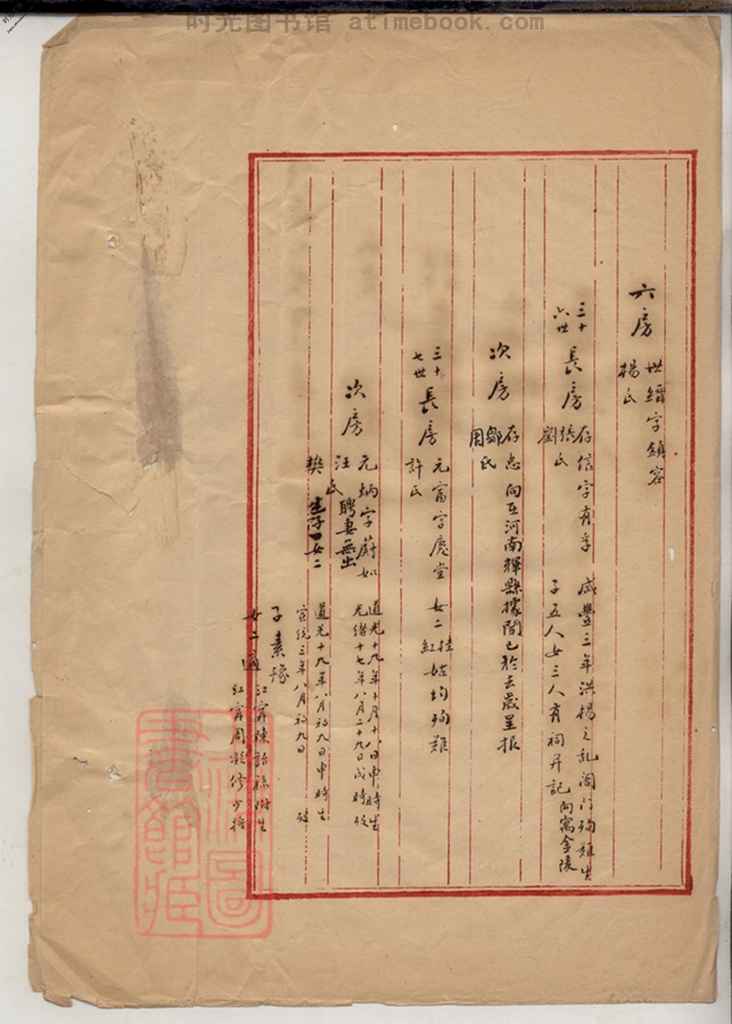 时光图书馆 atimebook.com
六房 世縉字鎮容
楊氏
三十六世 長房 存信字有孚 咸豐三年洪楊之亂闔門殉難生
張氏 劉氏 子五人女三人有祠并記 向寓金陵
次房 存忠 向在河南輝縣據聞已於去歲呈報
鄒氏 周氏
三十七世 長房 元富字慶堂 女二 桂紅 姑均殉難
許氏
次房 元炳字蔚如 道光十九年十月十八日申時生
光緒十七年八月二十九日戌時歿
汪氏 聘妻無出
樊氏 生子一女二 道光十九年八月初九日申時生
宣統三年八月初九日 故
子 素
女二適 江甯陳
江甯周